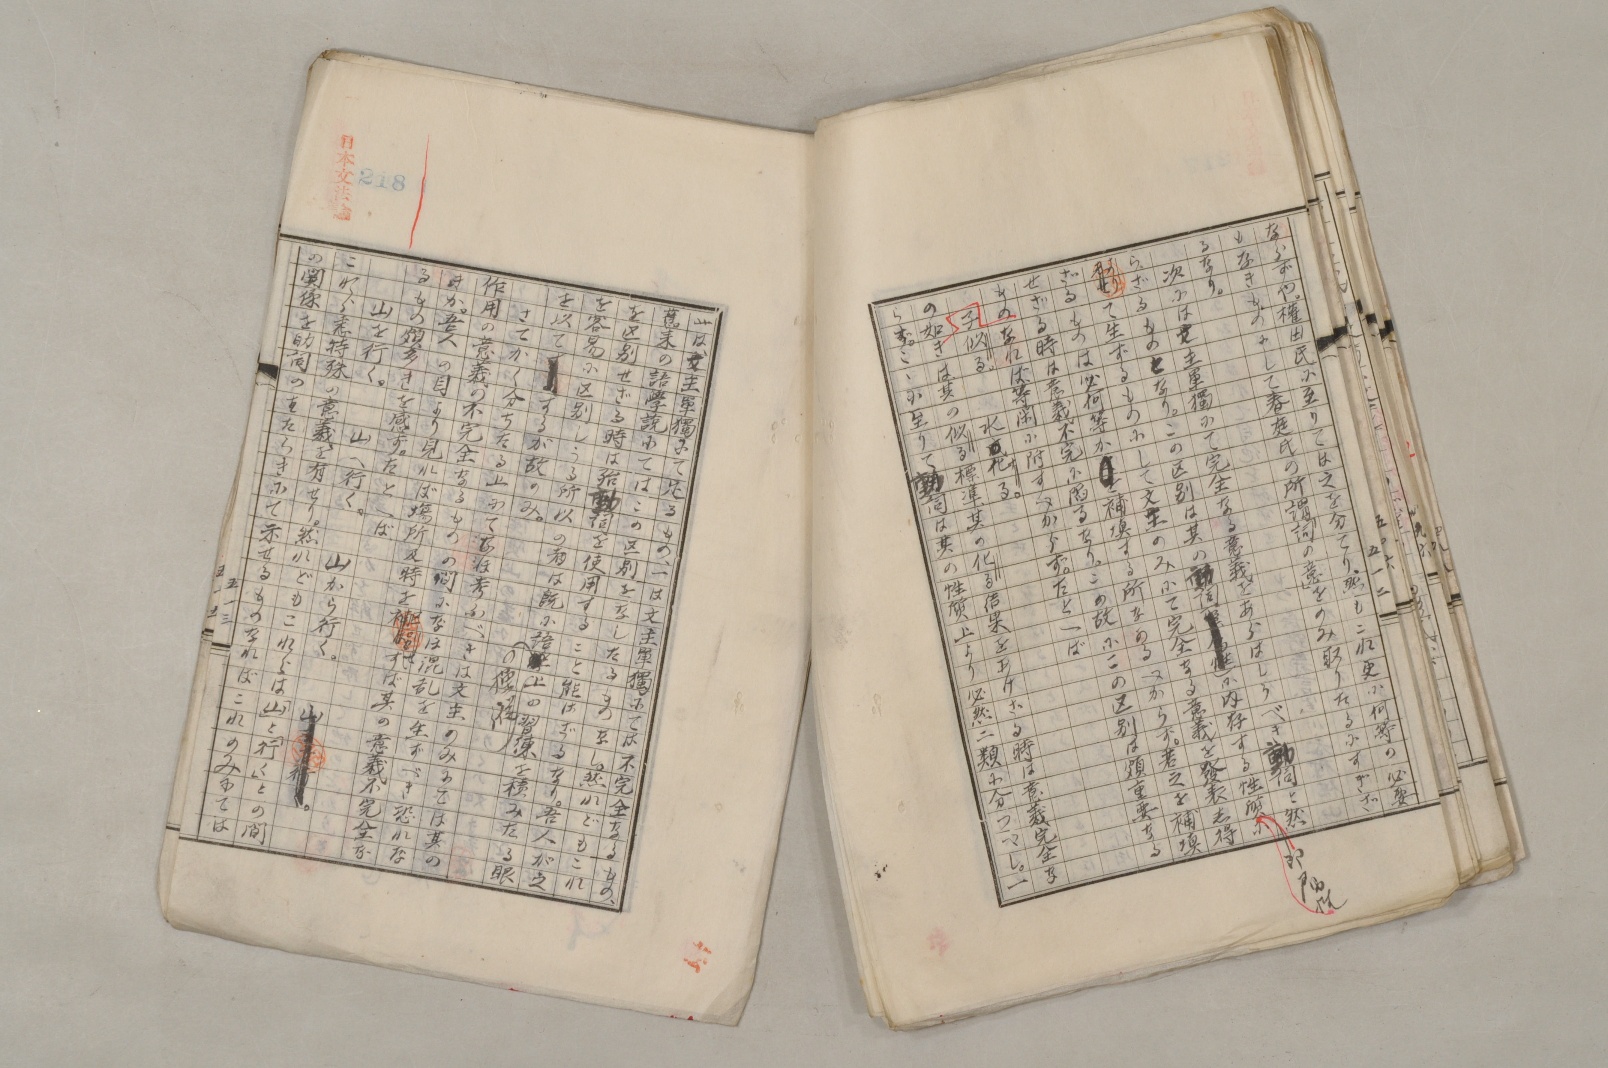 ならず。権田氏に至りては之を分てり。然もこれ更に何等の必要
もなきものにして春庭氏の所謂詞の意をのみ取りたるにすぎざ
るなり。
次には文主単獨にて完全なる意義をあらはしうべき動詞と然
らざるものとなり。この区別は其の動詞の性に内存する性質に
て生ずるものにして文主のみにて完全なる意義を發表し得
ざるものは必何等か補填する所なかるべからず。若之を補填
せざる時は意義不完に陥るなり。この故にこの区別は頗重要なる
ものなれば等閑に附すべからず。たとへば
子似る。 水化る。
の如きは其の似る標準其の化る結果をあげざる時は意義完全な
らず。こゝに至りて動詞は其の性質上より必然二類に分つべし。一
は文主単獨にて足るもの、一は文主単獨にては不完全なるもの、
舊来の語學説にてはこの区別をなしたるものなし。然れどもこれ
を区別せざる時は殆動詞を使用すること能はざるなり。吾人が之
を容易に区別しうる所以の者は既に語學上の習練を積みたる眼
を以てするが故のみ。
さてかく分ちたる上にてなほ考ふべきは文主のみにては其の
作用の意義の不完全なるものの間になほ混乱を生ずべき恐れな
きか。吾人の目より見れば場所及時を補はずば其の意義不完全な
るもの頗多きを感ず。たとへば
山を行く。 山へ行く。 山から行く。
これら悉特殊の意義を有せり。然れどもこれらは「山」と「行く」との間
の関係を助詞のはたらきにて示せるものなればこれのみにては
日本文法論
218